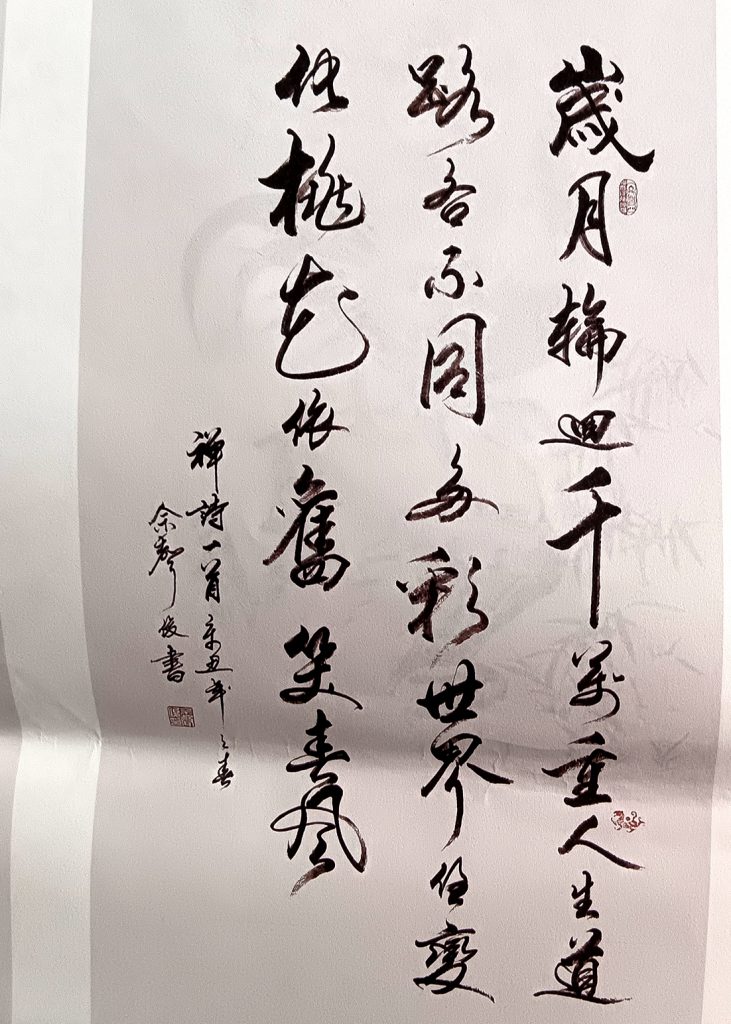 歲月輪迴千萬重人生道
路各不同多彩世界任變
化桃花依舊笑春風
禪詩一首辛丑年之春
余書